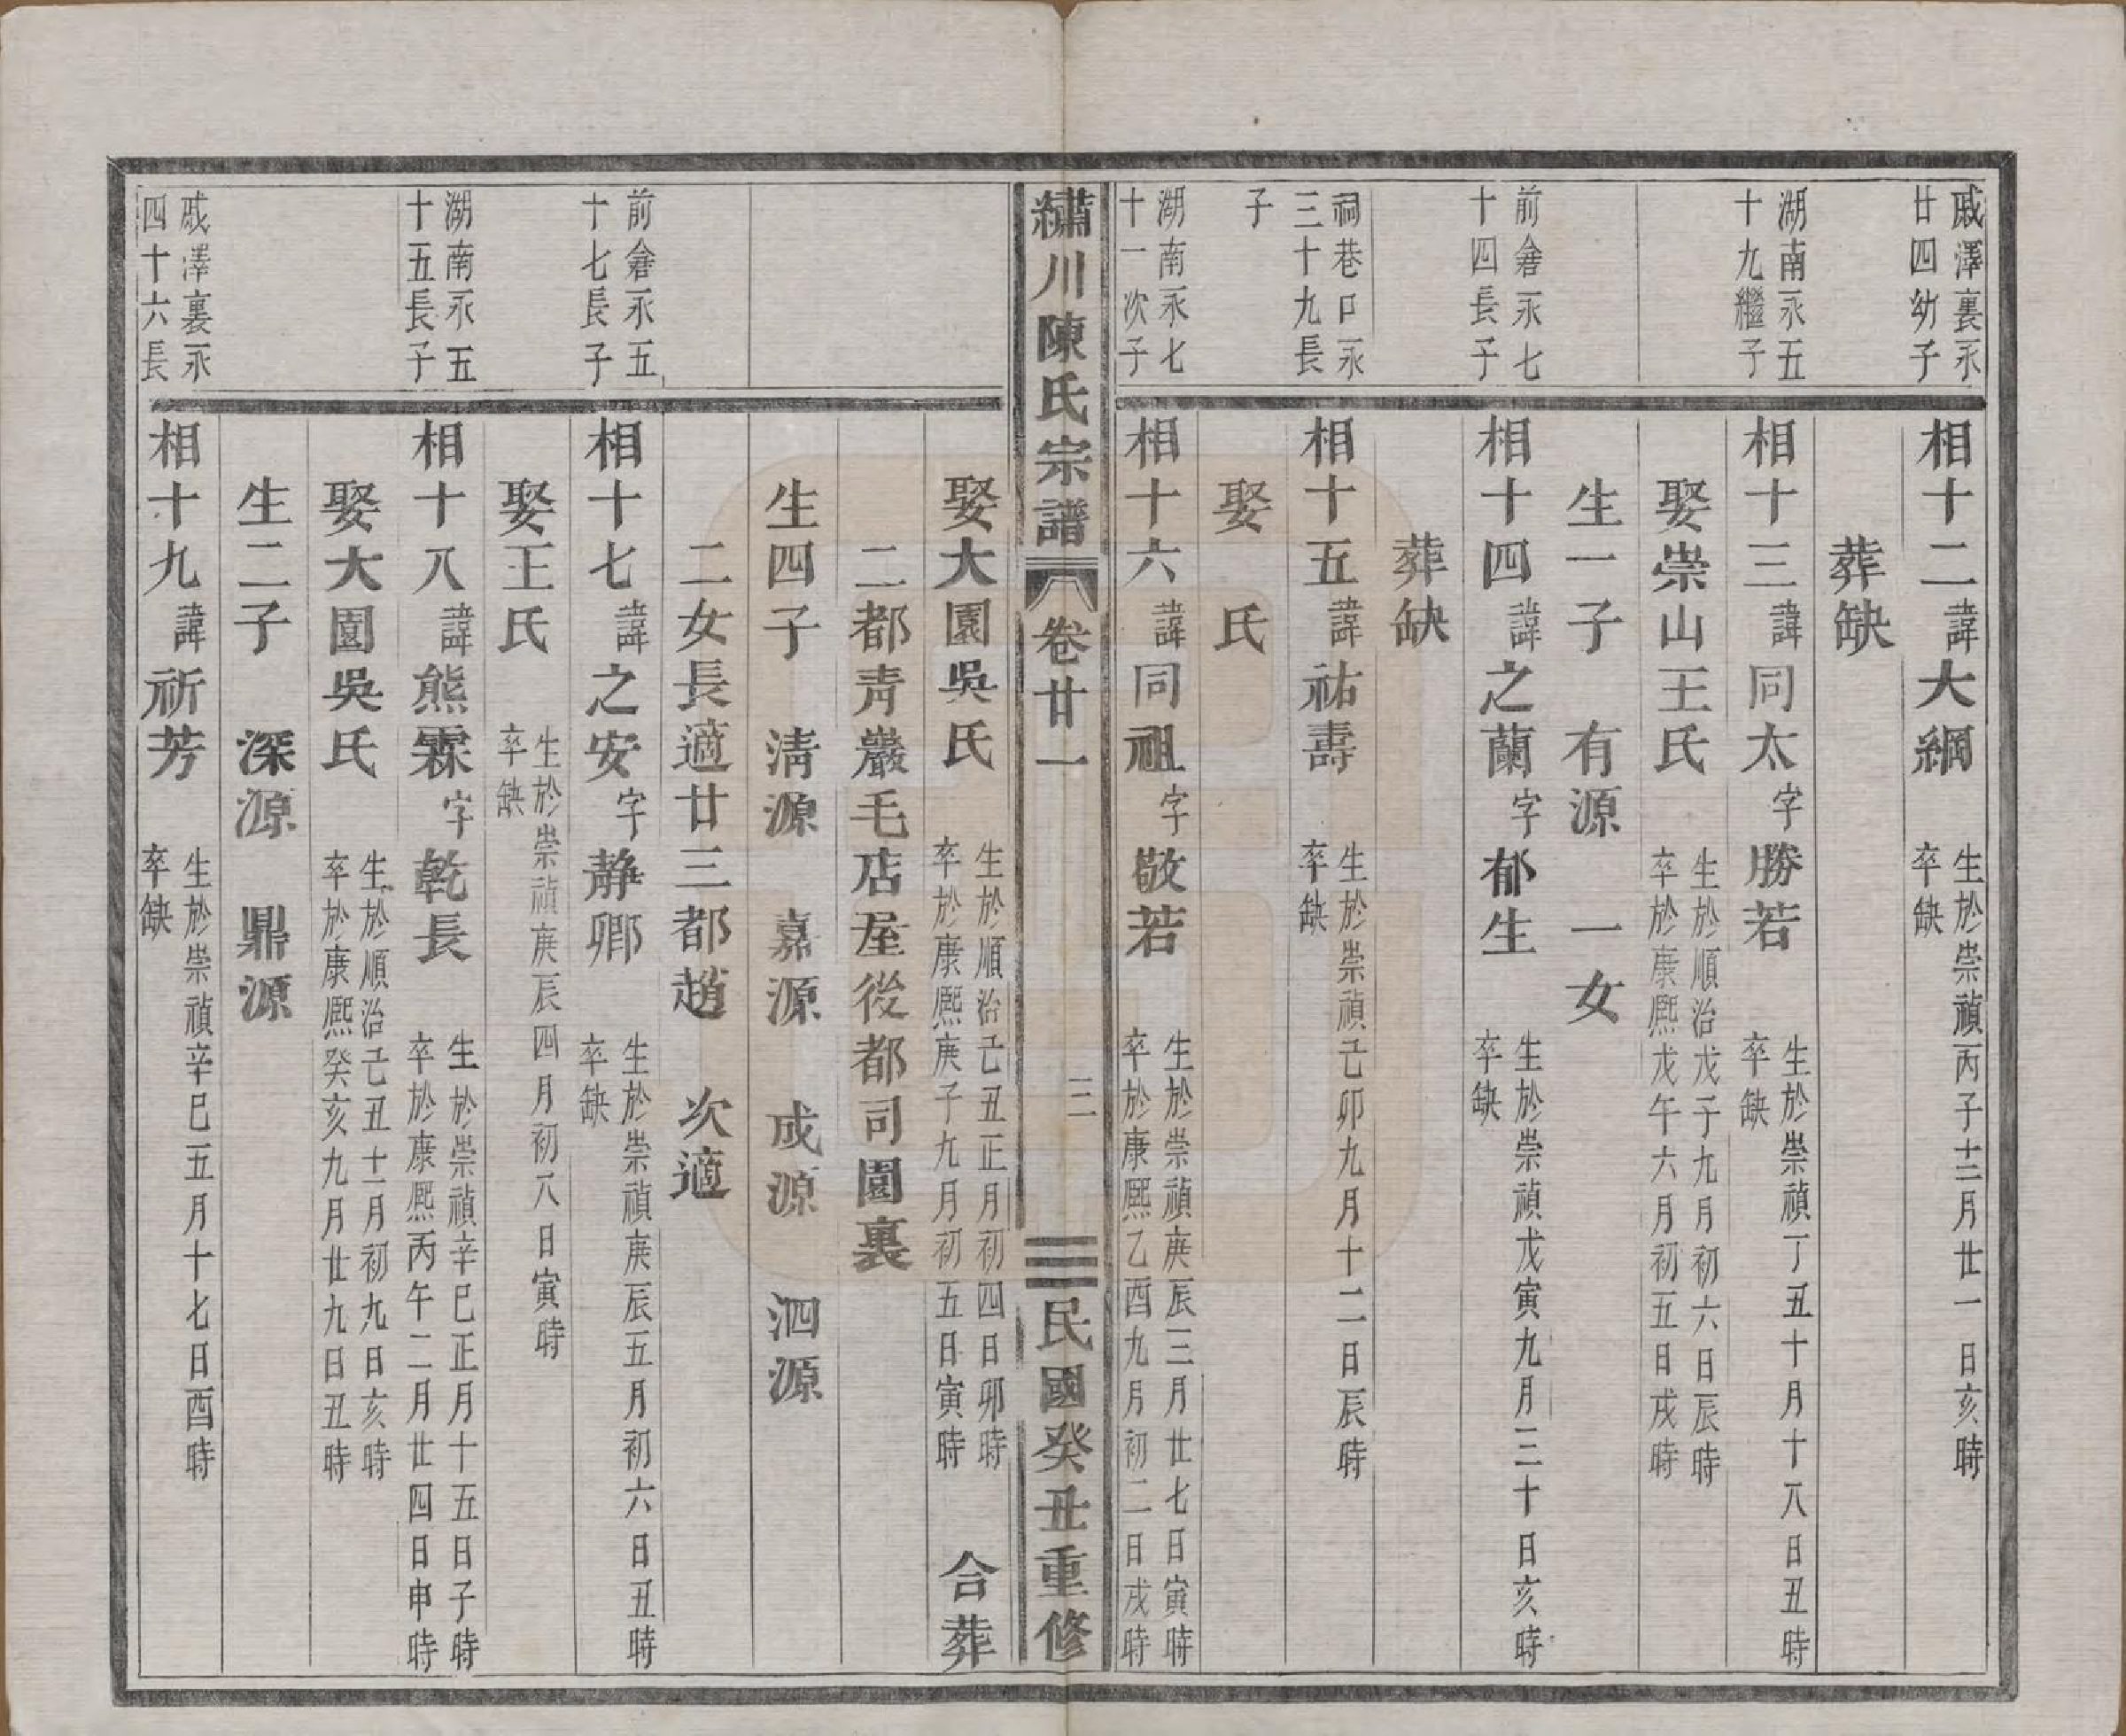 戚澤裏永
廿四幼子
相十二諱大綱
生於崇禎丙子十二月廿一日亥時
卒缺
葬缺
湖南永五
十九繼子
相十三諱同太字勝若
生於崇禎丁丑十月十八日丑時
卒缺
娶崇山王氏
生於順治戊子九月初六日辰時
卒於康熙戊午六月初五日戌時
生一子 有源 一女
前倉永七
十四長子
相十四諱之蘭字郁生
生於崇禎戊寅九月三十日亥時
卒缺
葬缺
祠巷口永
三十九長
子
相十五諱祐壽
生於崇禎己卯九月十二日辰時
卒缺
娶 氏
湖南永七
十一次子
相十六諱同祖字敬若
生於崇禎庚辰三月廿七日寅時
卒於康熙乙酉九月初二日戌時
繡川陳氏宗譜 卷廿一 三 民國癸丑重修
娶大園吳氏
生於順治己丑正月初四日卯時
卒於康熙庚子九月初五日寅時
合葬
二都青巖毛店屋後都司園裏
生四子 清源 嘉源 成源 泗源
二女長適廿三都趙 次適
前倉永五
十七長子
相十七諱之安字靜卿
生於崇禎庚辰五月初六日丑時
卒缺
娶王氏
生於崇禎庚辰四月初八日寅時
卒缺
湖南永五
十五長子
相十八諱熊霖字乾長
生於崇禎辛巳正月十五日子時
卒於康熙丙午二月廿四日申時
娶大園吳氏
生於順治己丑十一月初九日亥時
卒於康熙癸亥九月廿九日丑時
生二子 深源 鼎源
戚澤裏永
四十六長
相十九諱祈芳
生於崇禎辛巳五月十七日酉時
卒缺